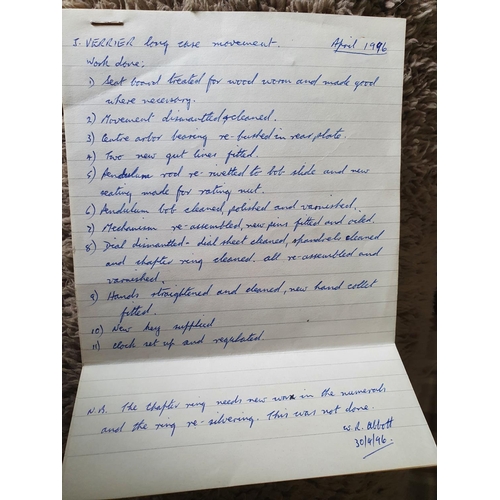 J. VERRIER long case movement. April 1996
Work done:
1) Seat board treated for wood worm and made good
where necessary.
2) Movement dismantled & cleaned.
3) Centre arbor bearing re-bushed in rear plate.
4) Two new gut lines fitted.
5) Pendulum rod re-rivetted to bob slide and new
seating made for rating nut.
6) Pendulum bob cleaned, polished and varnished.
7) Mechanism re-assembled, new pins fitted and oiled.
8) Dial dismantled - dial sheet cleaned, spandrels cleaned
and chapter ring cleaned. all re-assembled and
varnished.
9) Hands straightened and cleaned, new hand collet
fitted.
10) New key supplied
11) Clock set up and regulated.
N.B. The chapter ring needs new wax in the numerals
and the ring re-silvering. This was not done.
W. R. Abbott
30/4/96.